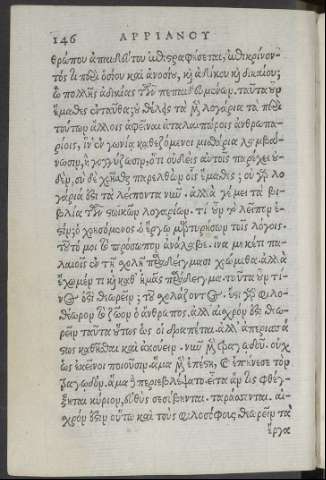 146 ΑΡΡΙΑΝΟΥ
θρώπου ἀπαιδεύτου
τὸς περὶ ὁσίου καὶ ἀνοσίου, καὶ ἀδίκου καὶ δικαίου;
ὢ πολλῆς ἀδικίας τῶν πεπαιδευμένων. ταῦτα οὖν
ἔμαθες ἐνταῦθα; οὐ θέλεις τὰ μὲν λογάρια τὰ περὶ
τούτων ἄλλοις ἀφεῖναι ἀταλαιπώροις ἀνθρωπα-
ρίοις, ἵν' ἐν γωνίᾳ καθεζόμενοι μισθάρια λαμβά-
νωσιν, ἢ γογγύζωσιν, ὅτι οὐδεὶς αὐτοῖς παρέχει οὐ-
δέν, σὺ δὲ χρῆσθαι παρελθὼν οἷς ἔμαθες; οὐ γὰρ λο-
γάριά ἐστι τὰ λείποντα νῦν. ἀλλὰ γέμει τὰ βι-
βλία τῶν στωικῶν λογαρίων. τί οὖν τὸ λεῖπόν ἐ-
στιν; ὁ χρησόμενος. ὁ ἔργῳ μαρτυρήσων τοῖς λόγοις.
τοῦτό μοι τὸ πρόσωπον ἀνάλαβε. ἵνα μηκέτι πα-
λαιοῖς ἐν τῇ σχολῇ παραδείγμασι χρώμεθα. ἀλλὰ
ἔχωμέν τι καὶ καθ' ἡμᾶς παράδειγμα. ταῦτα οὖν τί-
νος ἐστὶ θεωρεῖν; τοῦ σχολάζοντος. ἔστι γὰρ φιλο-
θέωρον τὸ ζῶον ὁ ἄνθρωπος. ἀλλ' αἰσχρόν ἐστι θεω-
ρεῖν ταῦτα οὕτως ὡς οἱ δραπέται. ἀλλ' ἀπερισπά-
στως καθῆσθαι καὶ ἀκούειν. νῦν μὲν τραγωδοῦ. οὐχ
ὡς ἐκεῖνοι ποιοῦσιν. ἅμα μὲν ἐπέστη, καὶ ἐπῄνεσε τὸν
τραγωδὸν. ἅμα δὲ περιεβλέψατο. εἶτα ἄν τις φθέγ-
ξηται κύριον, εὐθὺς σεσόβηνται. ταράσσονται. αἰ-
σχρόν ἐστιν οὕτω καὶ τοὺς φιλοσόφους θεωρεῖν τὰ
ἔργα